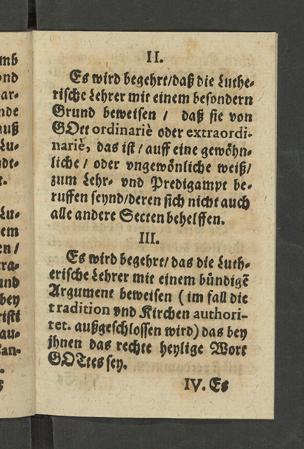 mb
ond
ar-
nde
auß
Lu-
ndt-
t.
Lu-
em
en/
tra-
und
bey
risti
au-
San-
II.
Es wird begehrt/daß die Luthe-
rische Lehrer mit einem besondern
Grund beweisen / daß sie von
GOtt ordinariè oder extraordi-
nariè, das ist / auff eine gewöhn-
liche / oder vngewönliche weiß/
zum Lehr- vnd Predigampt be-
ruffen seynd/deren sich nicht auch
alle andere Secten behelffen.
III.
Es wird begehrt/ das die Luth-
erische Lehrer mit einem bündigē
Argument beweisen ( im fall die
tradition vnd Kirchen authori-
tet. außgeschlossen wird) das bey
jhnen das rechte heylige Wort
GOTtes sey.
IV. Es